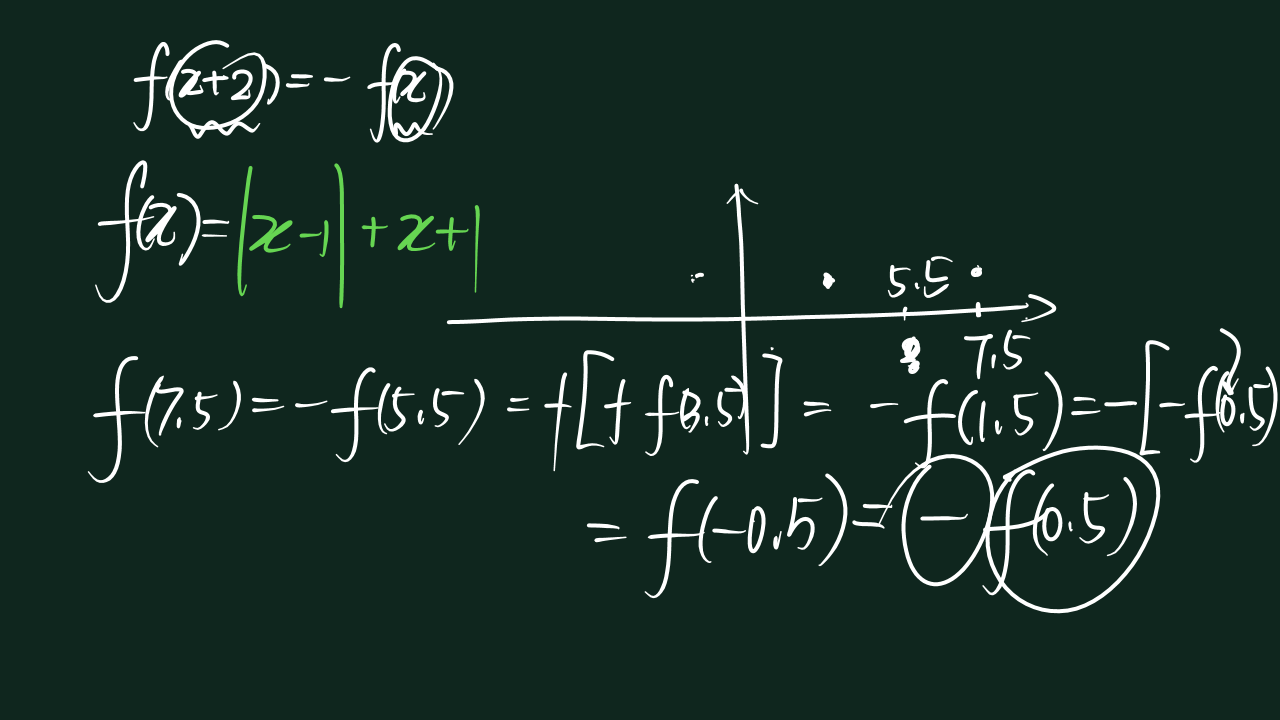 f(x+2)=-f(x)
f(x)=|x-1|+x+1
5.5
7.5
f(7.5)=-f(5.5)=f[f f(3.5)]=-f(1.5)=-[-f(0.5)
=f(-0.5)=-f(0.5)